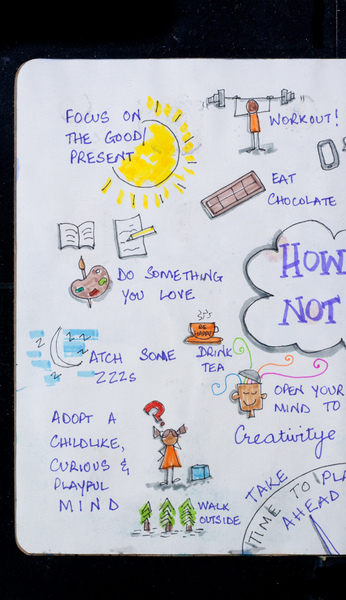 FOCUS ON
THE GOOD/
PRESENT
WORKOUT!
EAT
CHOCOLATE
HOW
NOT
DO SOMETHING
YOU LOVE
BE
HAPPY
DRINK
TEA
Z
Z
Z
Z
ATCH SOME
ZZZs
OPEN YOUR
MIND TO
Creativitye
?
ADOPT A
CHILDLIKE,
CURIOUS &
PLAYFUL
MIND
WALK
OUTSIDE
TAKE
TIME TO PLA
AHEAD